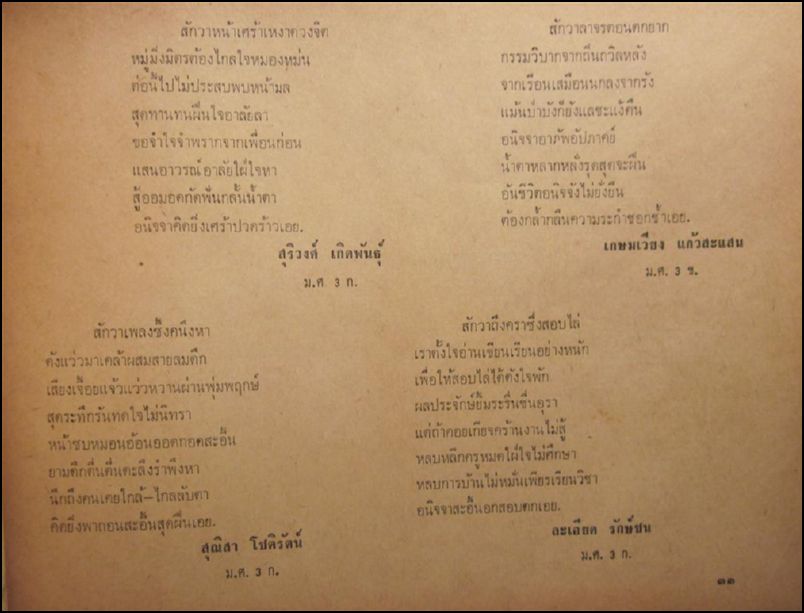 สักวาหน้าเศร้าเหงาดวงจิต
หมู่มิ่งมิตรต้องไกลใจหมองหม่น
ต่อนี้ไปไม่ประสบพบหน้ามล
สุดทานทนฝืนใจอาลัยลา
ขอจำใจจำพรากจากเพื่อนก่อน
แสนอาวรณ์อาลัยใฝ่ใจหา
สู้ออมอดกัดฟันกลั้นน้ำตา
อนิจจาคิดยิ่งเศร้าปวดร้าวเอย.
สุริวงค์ เกิดพันธุ์
ม.ศ. 3 ก.
สักวาลาจรตอนตกยาก
กรรมวิบากจากถิ่นถวิลหลัง
จากเรือนเสมือนนกลงจากรัง
แม้นป่าบังก็ยังแลชะแง้คืน
อนิจจาอาภัพอัปภาคย์
น้ำตาหลากหลั่งรุดสุดจะฝืน
อันชีวิตอนิจจังไม่ยั่งยืน
ต้องกล้ำกลืนความระกำชอกช้ำเอย.
เกษมเวียง แก้วสะแสน
ม.ศ. 3 ข.
สักวาเพลงซึ้งคนึงหา
ดังแว่วมาเคล้าผสมสายลมดึก
เสียงเจื้อยแจ้วแว่วหวานผ่านพุ่มพฤกษ์
สุดระทึกรันทดใจไม่นิทรา
หน้าซบหมอนอ้อนออดทอดสะอื้น
ยามดึกดื่นตื่นตะลึงรำพึงหา
นึกถึงคนเคยใกล้—ไกลลับตา
คิดยิ่งพาถอนสะอื้นสุดฝืนเอย.
สุณิสา โชติรัตน์
ม.ศ. 3 ก.
สักวาถึงคราซึ่งสอบไล่
เราตั้งใจอ่านเขียนเรียนอย่างหนัก
เพื่อให้สอบไล่ได้ดังใจพัก
ผลประจักษ์ยิ้มระรื่นชื่นอุรา
แต่ถ้าคอยเกียจคร้านงานไม่สู้
หลบหลีกครูหมดใฝ่ใจไม่ศึกษา
หลบการบ้านไม่หมั่นเพียรเรียนวิชา
อนิจจาสะอื้นอกสอบตกเอย.
ละเอียด รักษ์ชน
ม.ศ. 3 ก.
๓๑